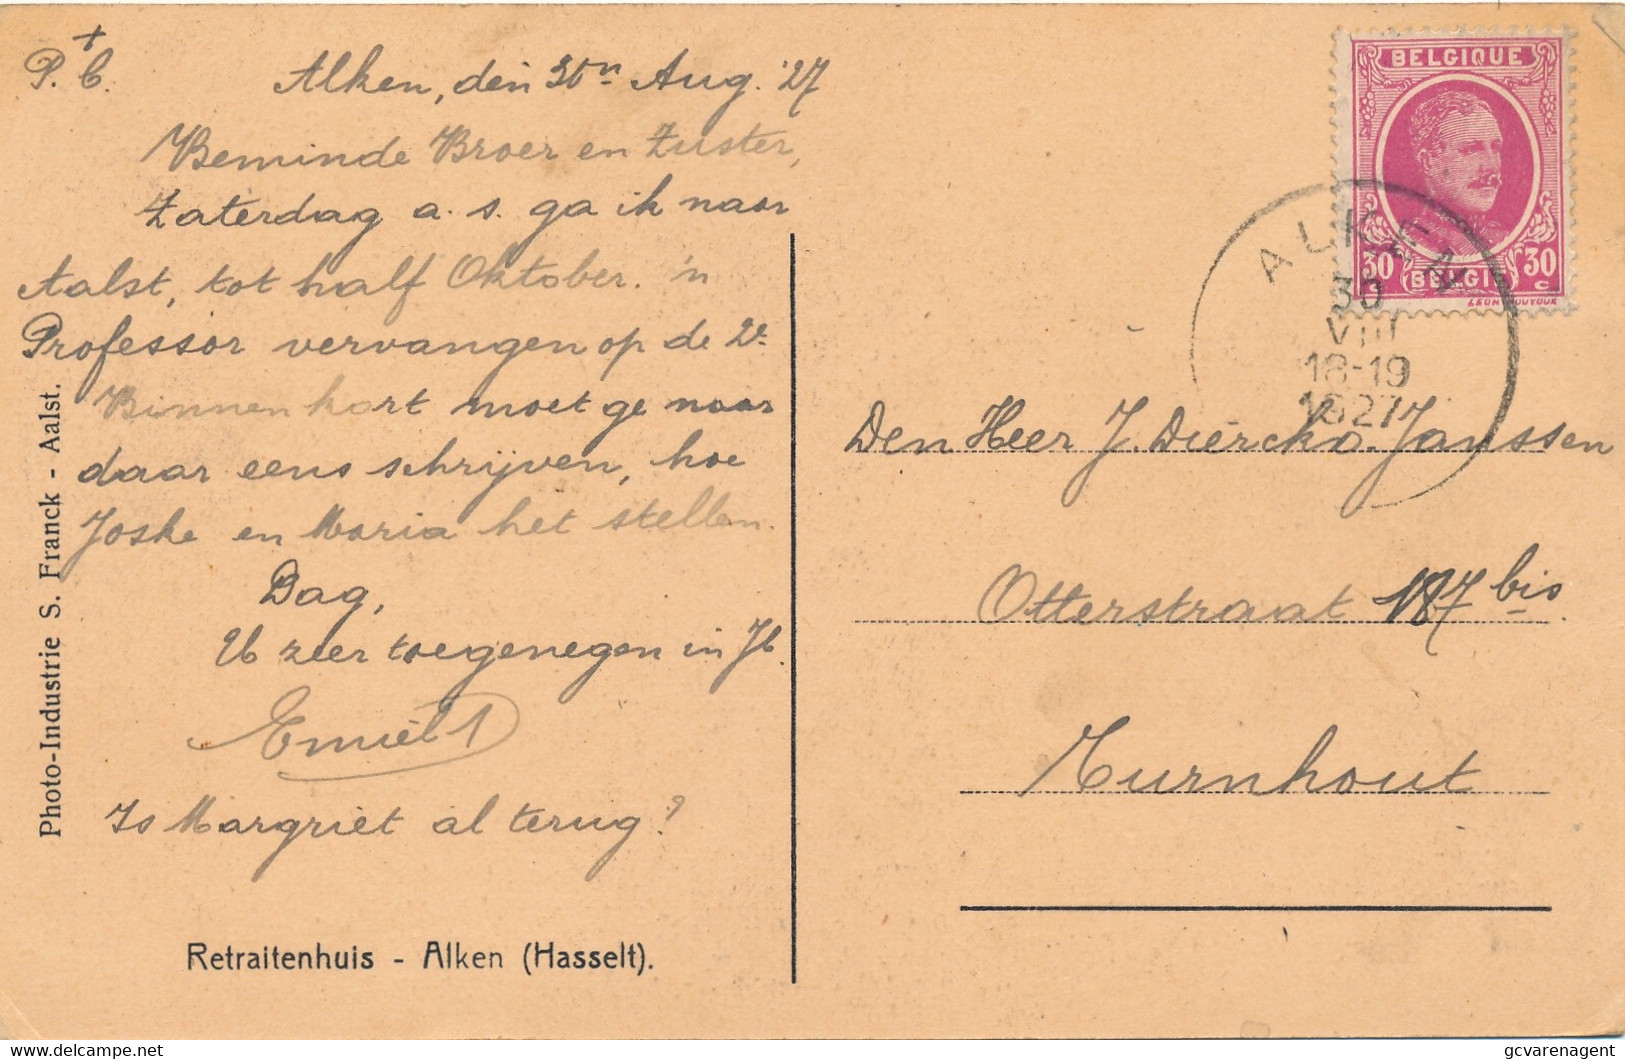 +
P. C.
Alken, den 30n Aug. '27
Beminde Broer en Zuster,
Zaterdag a. s. ga ik naar
Aalst, tot half Oktober. 'n
Professor vervangen op de 2e.
Binnen kort moet ge naar
daar eens schrijven, hoe
Joske en Maria het stellen.
Dag,
Ub zeer toegenegen in JC.
Emiel
Is Margriet al terug?
Retraitenhuis - Alken (Hasselt).
Photo-Industrie S. Franck - Aalst.
BELGIQUE
30 30
c c
BELGIE
ALKEN
30
VIII
18-19
1927
Den Heer J. Dierckx-Janssen
Otterstraat 187 bis
Turnhout
gcvarenagent